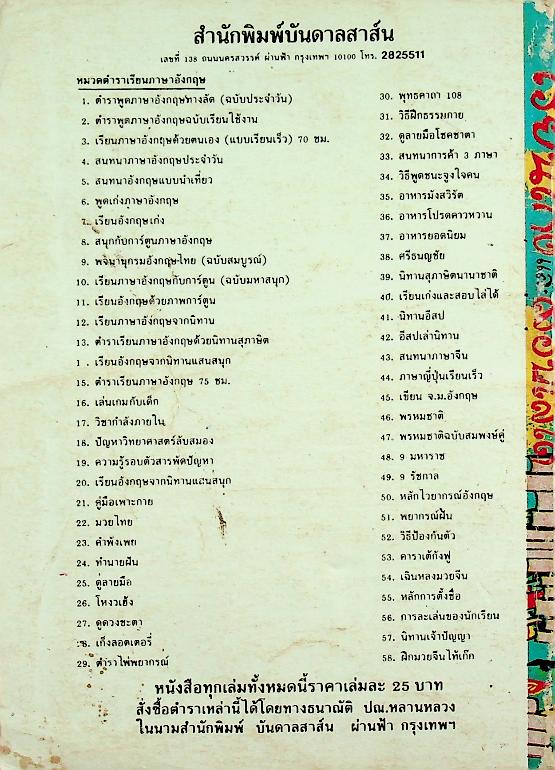 สำนักพิมพ์บันดาลสาส์น
เลขที่ 138 ถนนนครสวรรค์ ผ่านฟ้า กรุงเทพฯ 10100 โทร. 2825511
หมวดตำราเรียนภาษาอังกฤษ
1. ตำราพูดภาษาอังกฤษทางลัด (ฉบับประจำวัน)
2. ตำราพูดภาษาอังกฤษฉบับเรียนใช้งาน
3. เรียนภาษาอังกฤษด้วยตนเอง (แบบเรียนเร็ว) 70 ชม.
4. สนทนาภาษาอังกฤษประจำวัน
5. สนทนาอังกฤษแบบนำเที่ยว
6. พูดเก่งภาษาอังกฤษ
7. เรียนอังกฤษเก่ง
8. สนุกกับการ์ตูนภาษาอังกฤษ
9. พจนานุกรมอังกฤษ-ไทย (ฉบับสมบูรณ์)
10. เรียนภาษาอังกฤษกับการ์ตูน (ฉบับมหาสนุก)
11. เรียนอังกฤษด้วยภาพการ์ตูน
12. เรียนภาษาอังกฤษจากนิทาน
13. ตำราเรียนภาษาอังกฤษด้วยนิทานสุภาษิต
1 . เรียนอังกฤษจากนิทานแสนสนุก
15. ตำราเรียนภาษาอังกฤษ 75 ชม.
16. เล่นเกมกับเด็ก
17. วิชากำลังภายใน
18. ปัญหาวิทยาศาสตร์ลับสมอง
19. ความรู้รอบตัวสารพัดปัญหา
20. เรียนอังกฤษจากนิทานแสนสนุก
21. คู่มือเพาะกาย
22. มวยไทย
23. คำพังเพย
24. ทำนายฝัน
25. ดูลายมือ
26. โหงวเฮ้ง
27. ดูดวงชะตา
28. เก็งลอตเตอรี่
29. ตำราไพ่พยากรณ์
30. พุทธคาถา 108
31. วิธีฝึกธรรมกาย
32. ดูลายมือโชคชาตา
33. สนทนาการค้า 3 ภาษา
34. วิธีพูดชนะจูงใจคน
35. อาหารมังสวิรัต
36. อาหารโปรดคาวหวาน
37. อาหารยอดนิยม
38. ศรีธนญชัย
39. นิทานสุภาษิตนานาชาติ
40. เรียนเก่งและสอบไล่ได้
41. นิทานอีสป
42. อีสปเล่านิทาน
43. สนทนาภาษาจีน
44. ภาษาญี่ปุ่นเรียนเร็ว
45. เขียน จ.ม.อังกฤษ
46. พรหมชาติ
47. พรหมชาติฉบับสมพงษ์คู่
48. 9 มหาราช
49. 9 รัชกาล
50. หลักไวยากรณ์อังกฤษ
51. พยากรณ์ฝัน
52. วิธีป้องกันตัว
53. คาราเต้กังฟู
54. เฉินหลงมวยจีน
55. หลักการตั้งชื่อ
56. การละเล่นของนักเรียน
57. นิทานเจ้าปัญญา
58. ฝึกมวยจีนไท้เก๊ก
หนังสือทุกเล่มทั้งหมดนี้ราคาเล่มละ 25 บาท
สั่งซื้อตำราเหล่านี้ได้โดยทางธนาณัติ ปณ.หลานหลวง
ในนามสำนักพิมพ์ บันดาลสาส์น ผ่านฟ้า กรุงเทพฯ